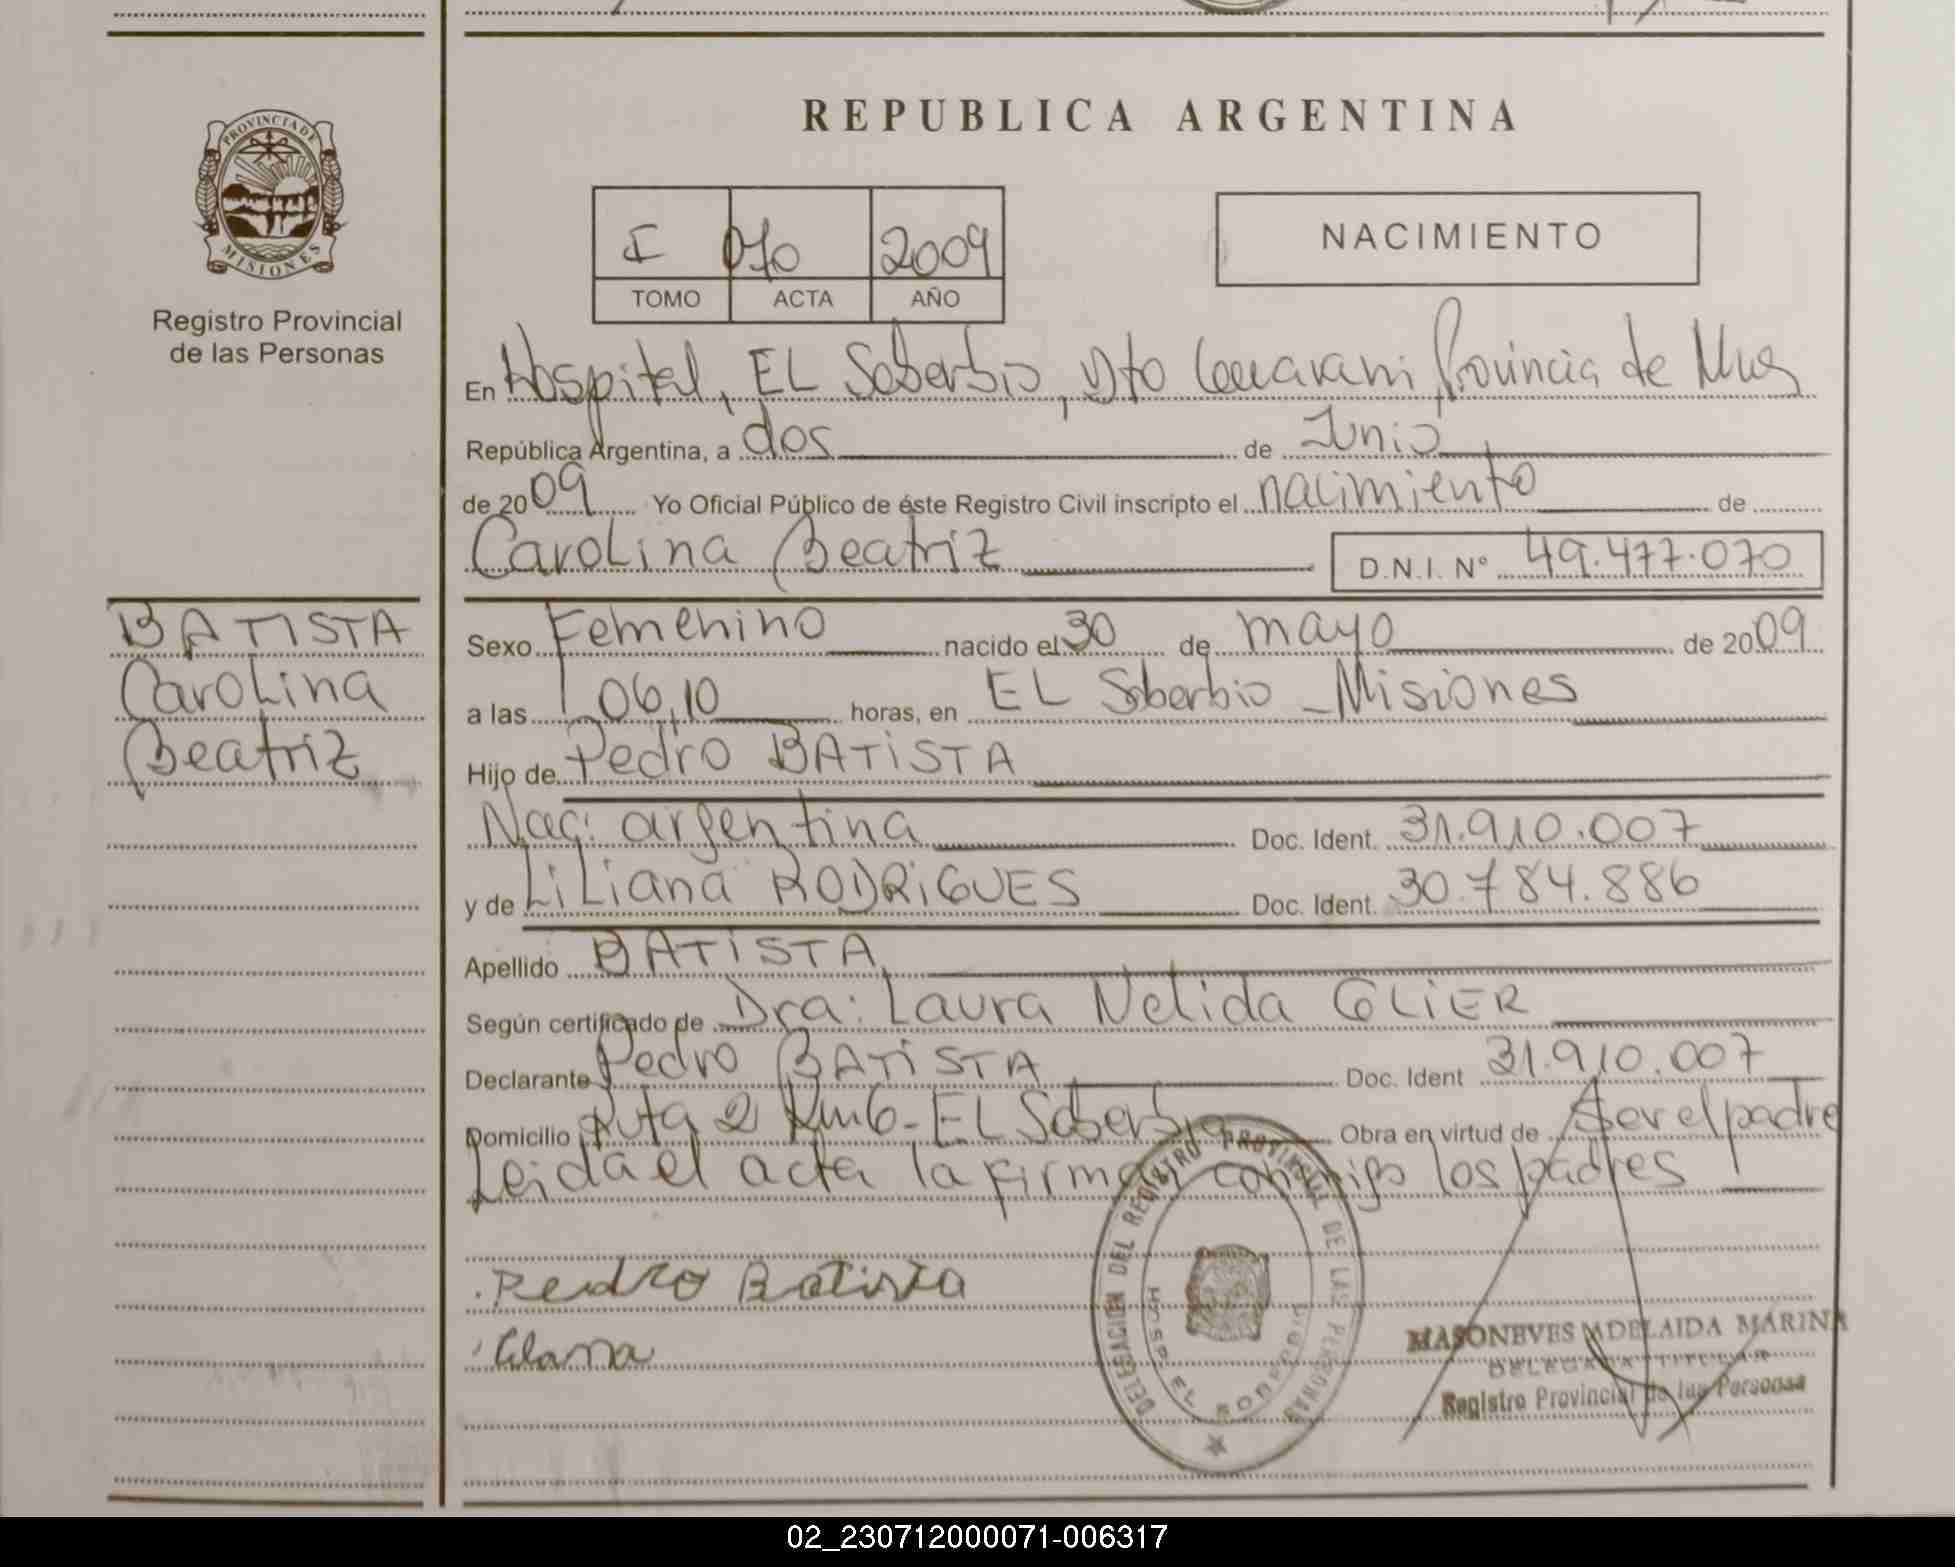 REPUBLICA ARGENTINA
PROVINCIA DE
MISIONES
Registro Provincial
de las Personas
I 070 2009
TOMO ACTA AÑO
NACIMIENTO
En Hospital, EL Soberbio, Dto Guarani Provincia de Mnes
República Argentina, a dos de Junio
de 2009 Yo Oficial Público de éste Registro Civil inscripto el nacimiento de
Carolina Beatriz D.N.I. N° 49.477.070
BATISTA
Carolina
Beatriz
Sexo Femenino nacido el 30 de mayo de 2009
a las 06,10 horas, en EL Soberbio - Misiones
Hijo de Pedro BATISTA
Nac: argentina Doc. Ident. 31.910.007
y de Liliana RODRIGUES Doc. Ident. 30.784.886
Apellido BATISTA
Según certificado de Dra: Laura Nelida GLIER
Declarante Pedro BATISTA Doc. Ident 31.910.007
Domicilio Ruta 2 Km6 - EL Soberbio Obra en virtud de ser el padre
Leida el acta la firman conmigo los padres
Pedro Batista
DELEGACION DEL REGISTRO PROVINCIAL DE LAS PERSONAS
HOSP. EL SOBERBIO
MASONEVES ADELAIDA MARINA
DELEGADA TITULAR
Registro Provincial de las Personas
02_230712000071-006317